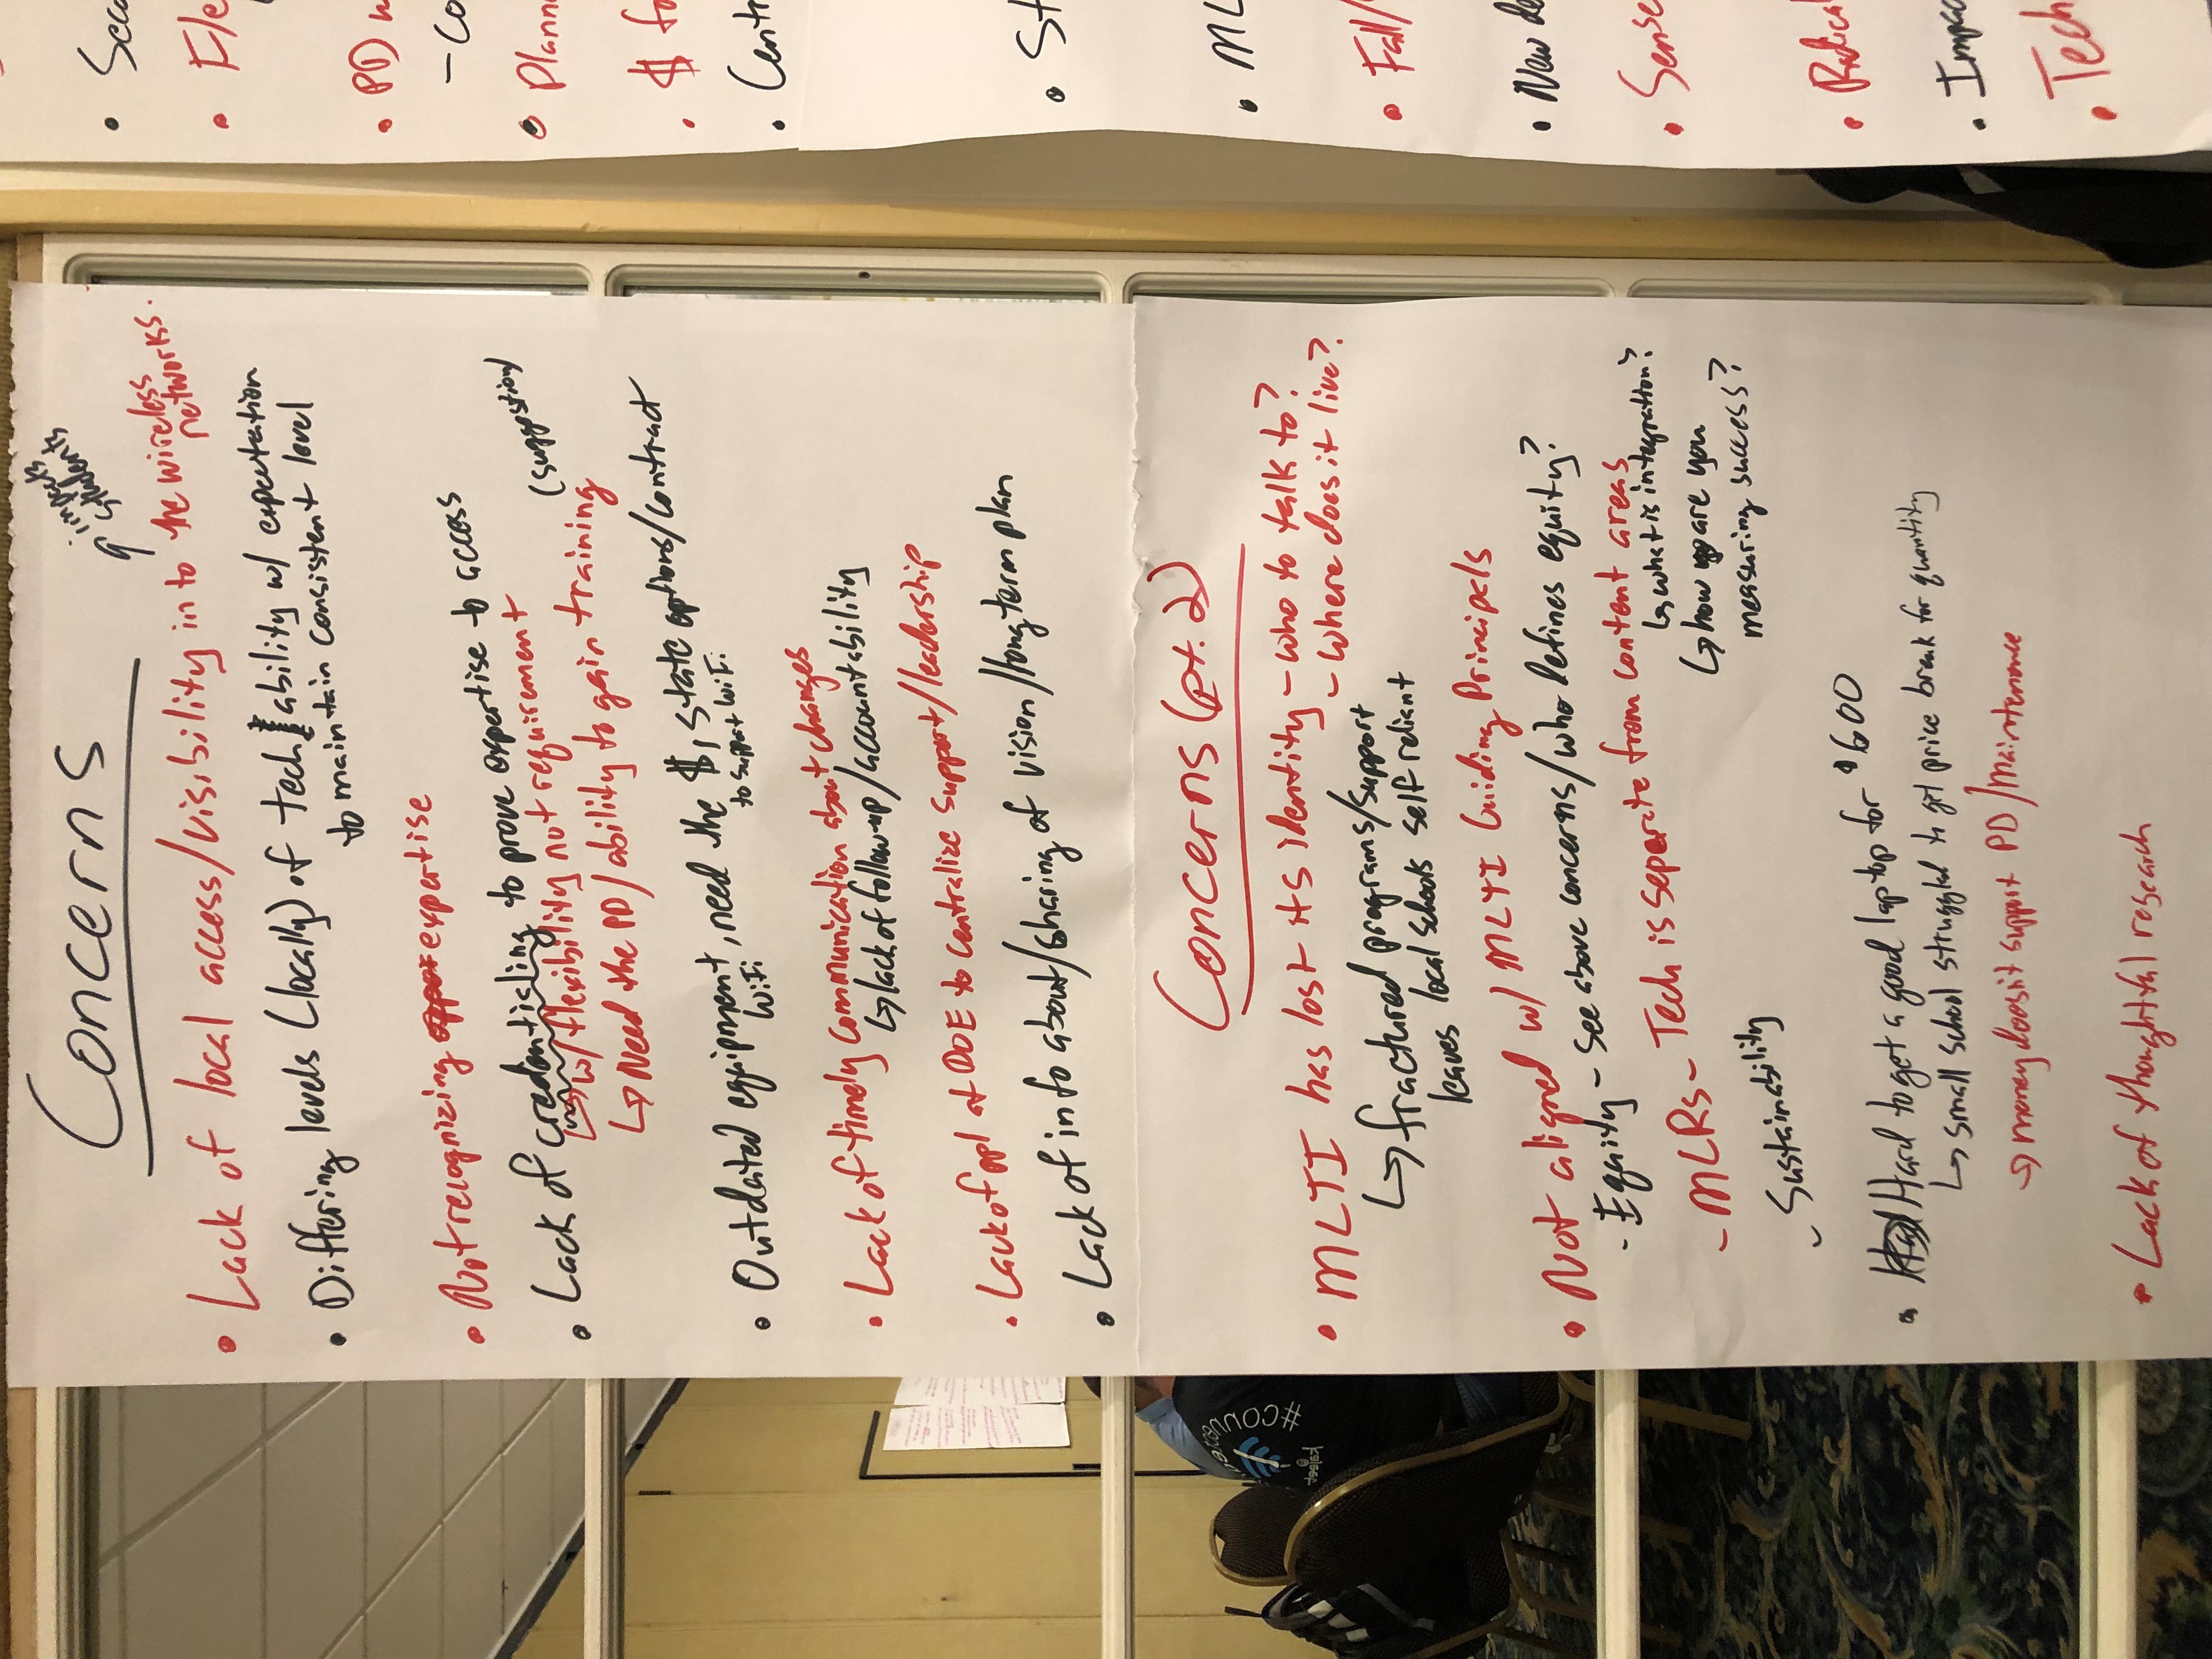 Concerns
impacts
students
• Lack of local access/visibility into the wireless
networks.
• Differing levels (locally) of tech ability w/ expectation
to maintain consistent level
• Not recognizing expertise
• Lack of credentialing to prove expertise to access
w/ flexibility not requirement (suggestion)
↳ Need the PD/ability to gain training
• Outdated equipment, need the $, state options/contract
WiFi
to support WiFi
• Lack of timely communication about changes
↳ lack of followup/accountability
• Lack of ppl at DOE to centralize support/leadership
• Lack of info about/sharing of vision/long term plan
Concerns (pt. 2)
• MLTI has lost its identity - who to talk to?
- where does it live?
↳ fractured programs/support
leaves local schools self reliant
• Not aligned w/ MLTI Guiding Principels
- Equity - see above concerns/who defines equity?
- MLRs - Tech is seperate from content areas
↳ what is integration?
↳ how are you
measuring success?
- Sustainability
• Hard to get a good laptop for $600
↳ small school struggled to get price break for quantity
↳ money doesn't support PD/maintenance
• Lack of thoughtful research
• F/e
• PD
- Co
• Planne
• $ fo
• Centr
• St
• ML
• Fall/
• New de
• Sense
• Radical
• Impac
• Tech
#COU